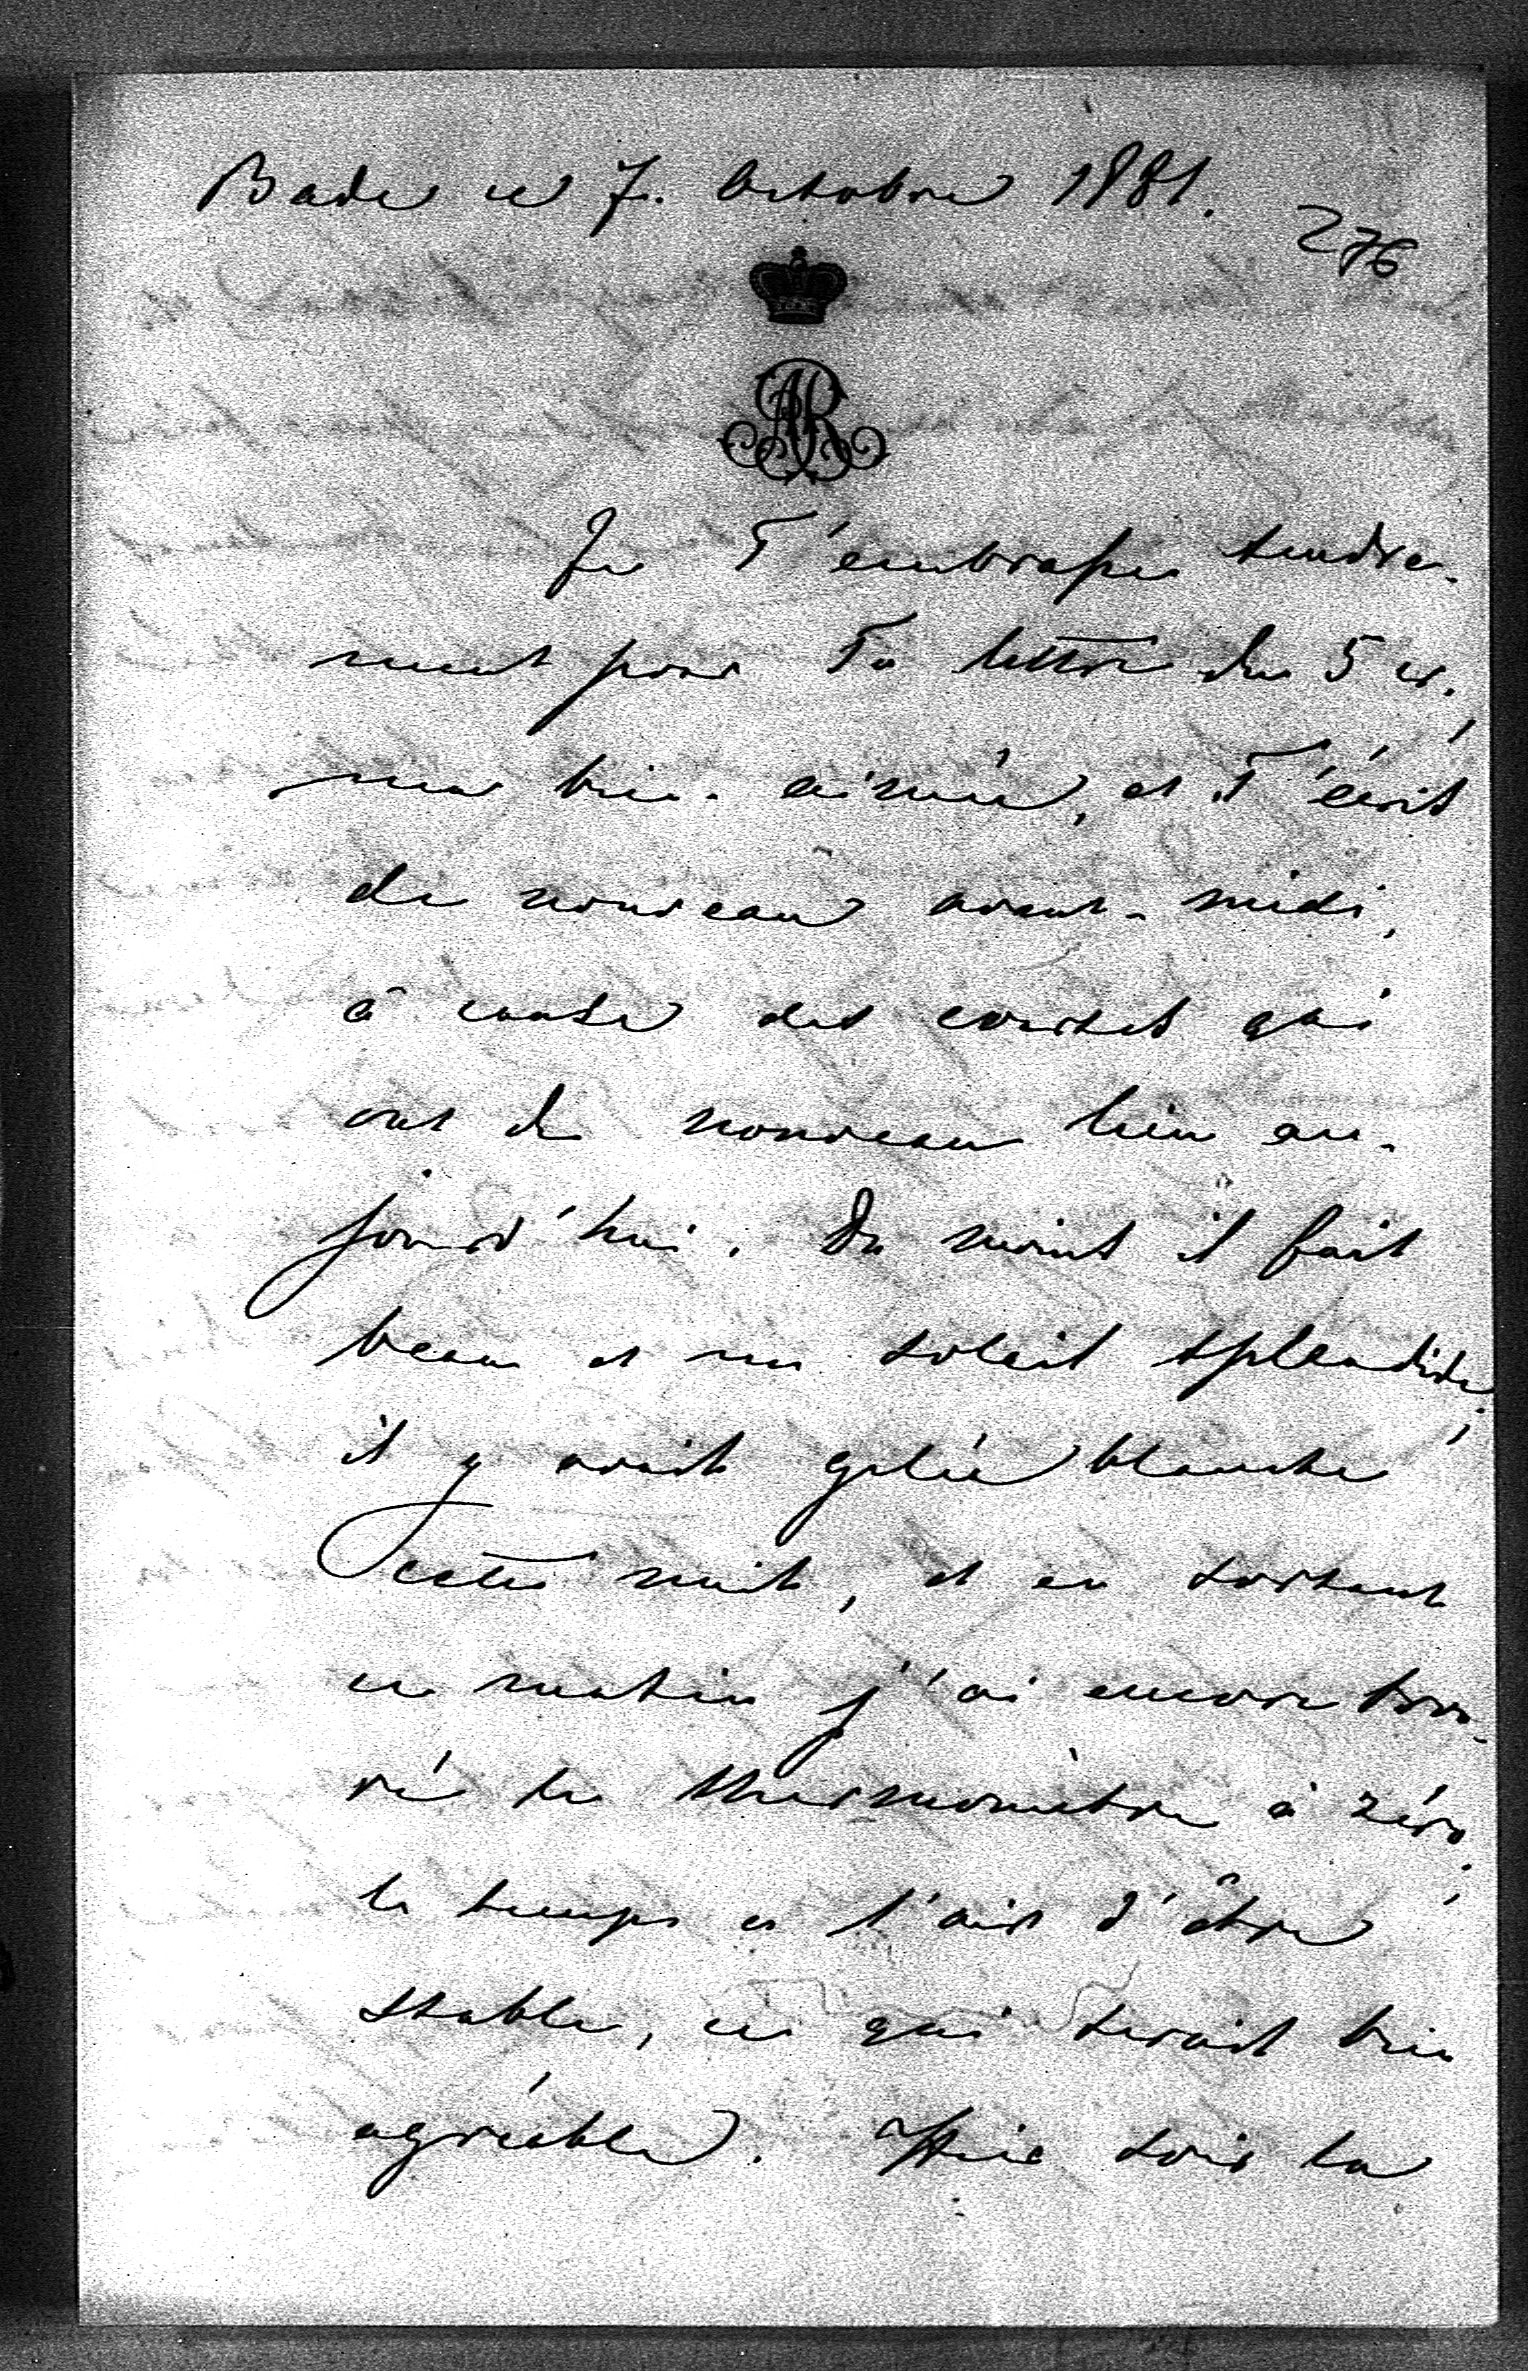 Bade ce 7. Octobre 1881.
276
AR
Je T'embrasse tendre-
ment pour Ta lettre du 5 cr.,
ma bien-aimée, et T'écrit
de nouveau avant-midi,
à cause des courses qui
ont de nouveau lieu au-
jourd'hui. Du moins il fait
beau et un soleil splendide;
il y avait gelée blanche
cette nuit, et en sortant
ce matin j'ai encore trou-
vé le thermomètre à zéro;
le temps a l'air d'être
stable, ce qui serait bien
agréable. Hier soir la